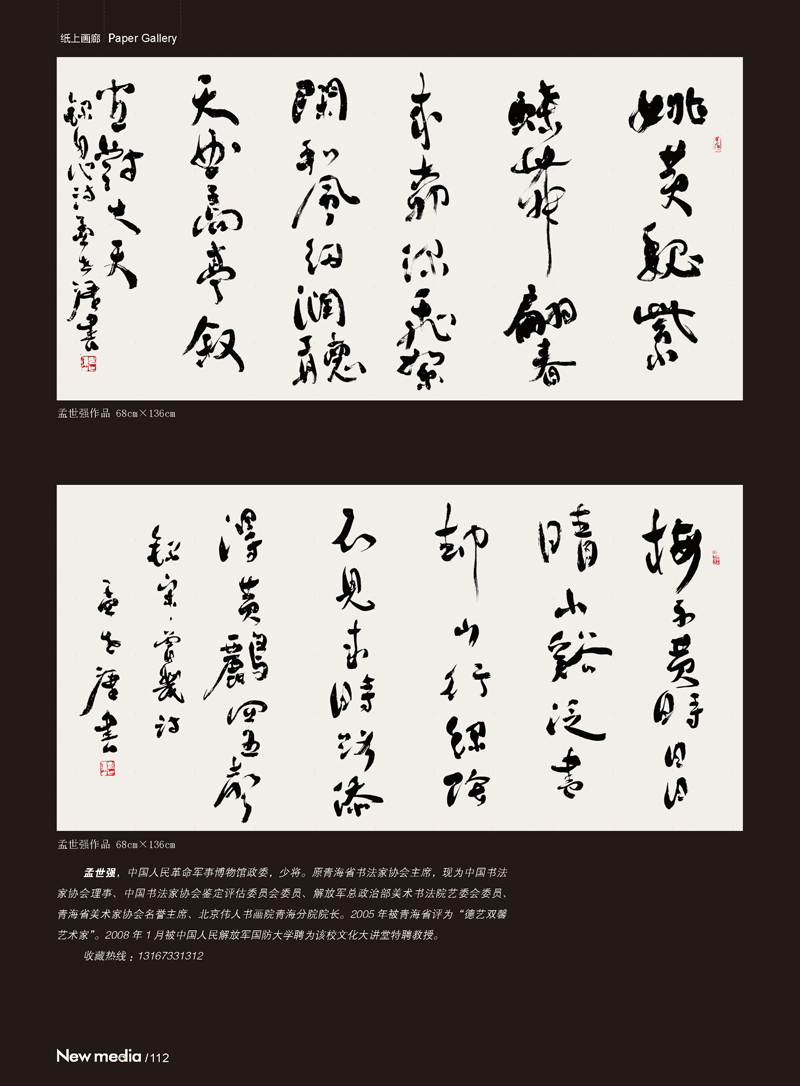 纸上画廊 Paper Gallery
姚黄魏紫
蝶舞翩春
来
和風细润聽
天高亭叙
宜對天
孟世强書
孟世强作品 68cm×136cm
梅子黄時日日
晴小谿泛盡
却山行綠陰
不見来時路添
得黄鸝四五聲
録宋·曾幾詩
孟世强書
孟世强作品 68cm×136cm
孟世强，中国人民革命军事博物馆政委，少将。原青海省书法家协会主席，现为中国书法
家协会理事、中国书法家协会鉴定评估委员会委员、解放军总政治部美术书法院艺委会委员、
青海省美术家协会名誉主席、北京伟人书画院青海分院院长。2005 年被青海省评为“德艺双馨
艺术家”。2008 年 1 月被中国人民解放军国防大学聘为该校文化大讲堂特聘教授。
收藏热线：13167331312
New media / 112